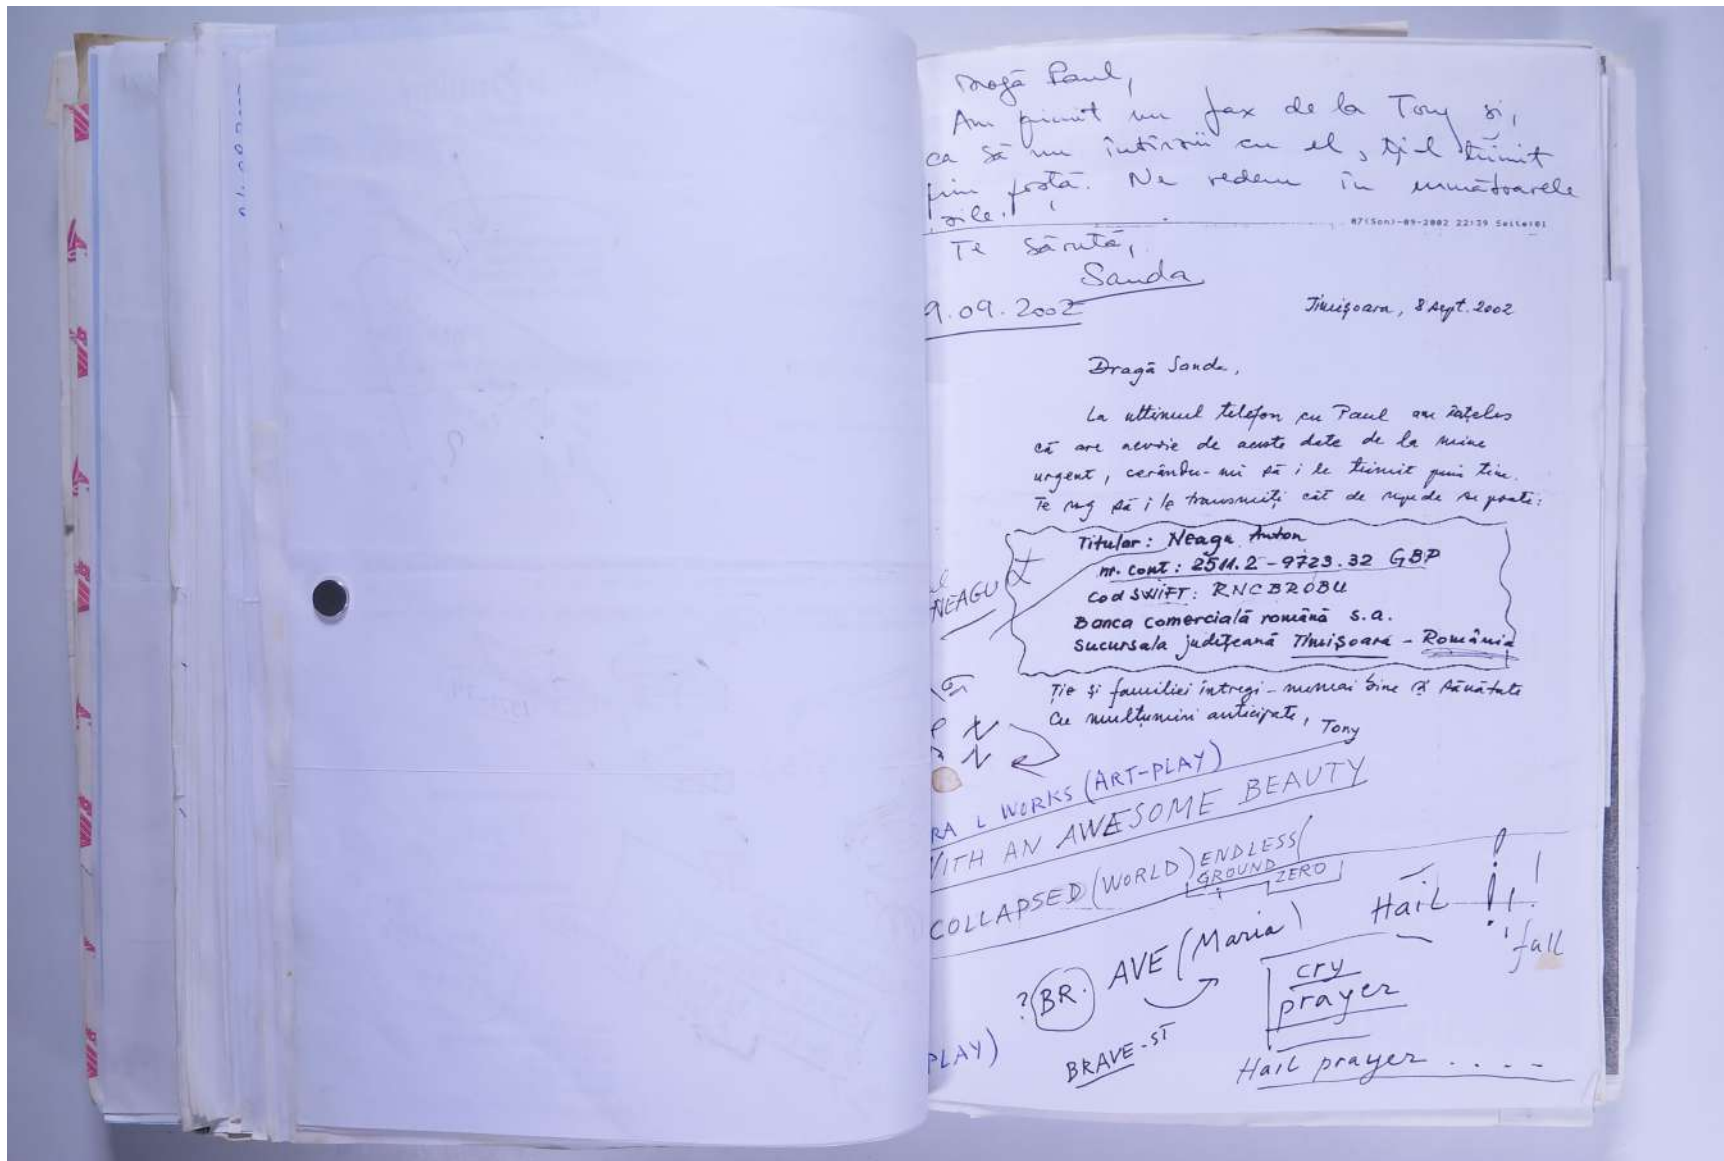 Dragă Paul,
Am primit un fax de la Tony și,
ca să nu întîrzii cu el, ți-l trimit
prin poștă. Ne vedem în următoarele
zile.
07(Son)-09-2002 22:39 Seite:01
Te sărută,
Sanda
9.09.2002
Timișoara, 8 Sept. 2002
Dragă Sanda,
La ultimul telefon cu Paul am înțeles
că are nevoie de aceste date de la mine
urgent, cerându-mi să i le trimit prin tine.
Te rog să i le transmiți cât de repede se poate:
Titular: Neagu Anton
nr. cont: 2511.2-9723.32 GBP
cod SWIFT: RNCBROBU
Banca comercială română s.a.
Sucursala județeană Timișoara - România
NEAGU
Ție și familiei întregi - numai bine și sănătate
Cu mulțumiri anticipate,
Tony
RA L WORKS (ART-PLAY)
WITH AN AWESOME BEAUTY
COLLAPSED (WORLD) ENDLESS/
GROUND ZERO
Hail !
fall
? BR. AVE (Maria)
cry
prayer
PLAY)
BRAVE-ST
Hail prayer . . . .